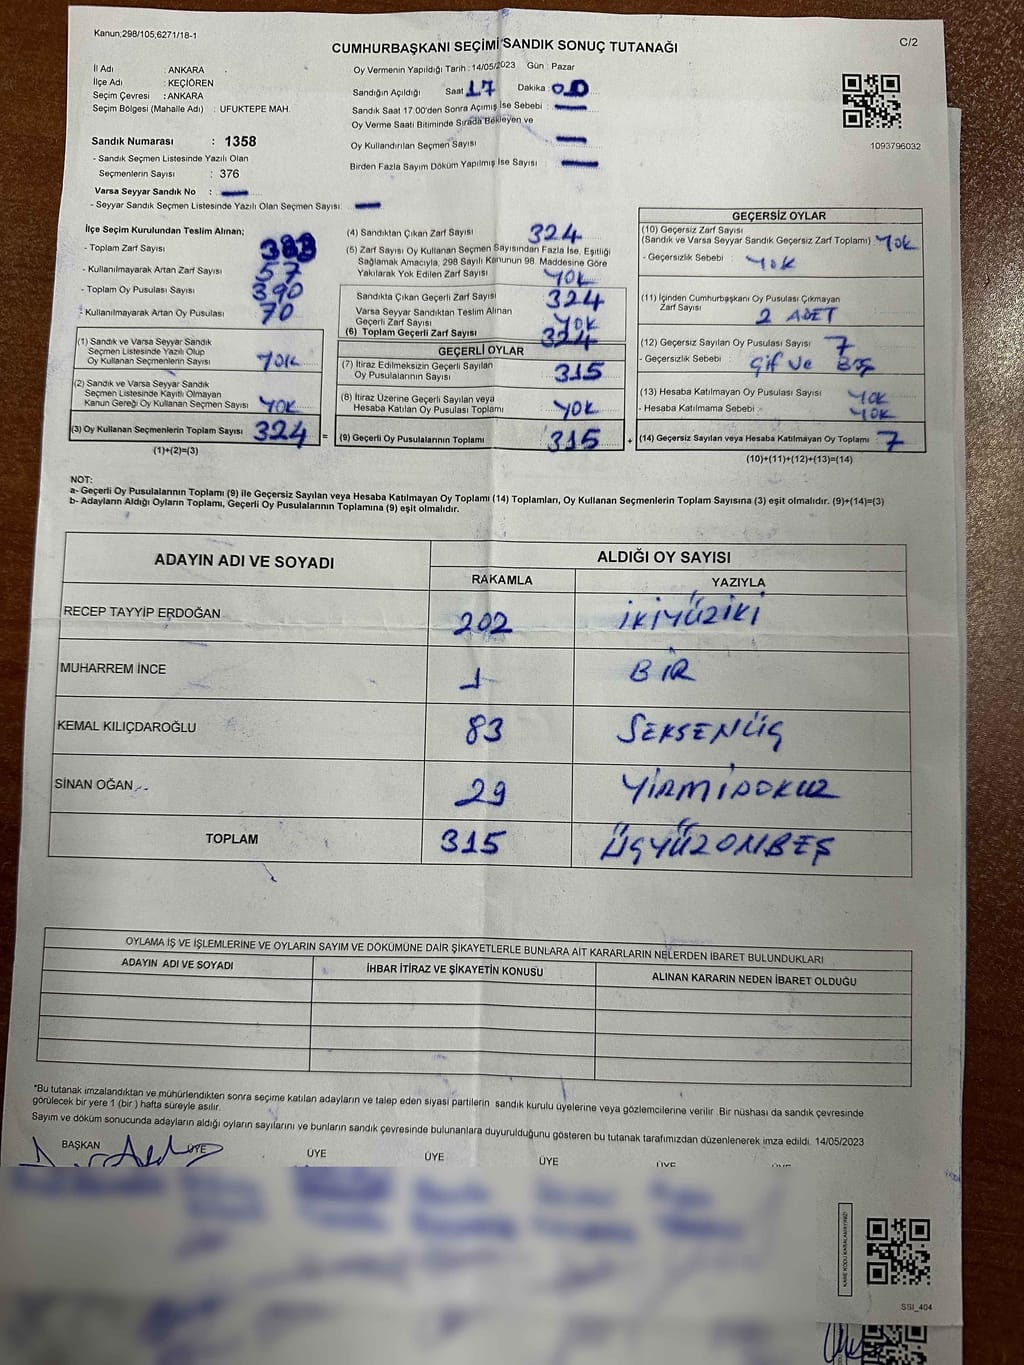 Kanun;298/105,6271/18-1
CUMHURBAŞKANI SEÇİMİ SANDIK SONUÇ TUTANAĞI
C/2
İl Adı : ANKARA
İlçe Adı : KEÇİÖREN
Seçim Çevresi : ANKARA
Seçim Bölgesi (Mahalle Adı) : UFUKTEPE MAH.
Sandık Numarası : 1358
- Sandık Seçmen Listesinde Yazılı Olan
Seçmenlerin Sayısı : 376
Varsa Seyyar Sandık No : —
- Seyyar Sandık Seçmen Listesinde Yazılı Olan Seçmen Sayısı: —
Oy Vermenin Yapıldığı Tarih : 14/05/2023 Gün : Pazar
Sandığın Açıldığı Saat : 17 Dakika : 00
Sandık Saat 17.00'den Sonra Açımış İse Sebebi : —
Oy Verme Saati Bitiminde Sırada Bekleyen ve
Oy Kullandırılan Seçmen Sayısı —
Birden Fazla Sayım Döküm Yapılmış İse Sayısı —
1093796032
İlçe Seçim Kurulundan Teslim Alınan;
- Toplam Zarf Sayısı
- Kullanılmayarak Artan Zarf Sayısı 57
- Toplam Oy Pusulası Sayısı 390
- Kullanılmayarak Artan Oy Pusulası 70
(1) Sandık ve Varsa Seyyar Sandık
Seçmen Listesinde Yazılı Olup
Oy Kullanan Seçmenlerin Sayısı YOK
(2) Sandık ve Varsa Seyyar Sandık
Seçmen Listesinde Kayıtlı Olmayan
Kanun Gereği Oy Kullanan Seçmen Sayısı YOK
(3) Oy Kullanan Seçmenlerin Toplam Sayısı 324 =
(1)+(2)=(3)
(4) Sandıktan Çıkan Zarf Sayısı 324
(5) Zarf Sayısı Oy Kullanan Seçmen Sayısından Fazla İse, Eşitliği
Sağlamak Amacıyla, 298 Sayılı Kanunun 98. Maddesine Göre
Yakılarak Yok Edilen Zarf Sayısı YOK
Sandıkta Çıkan Geçerli Zarf Sayısı 324
Varsa Seyyar Sandıktan Teslim Alınan
Geçerli Zarf Sayısı YOK
(6) Toplam Geçerli Zarf Sayısı 324
GEÇERLİ OYLAR
(7) İtiraz Edilmeksizin Geçerli Sayılan
Oy Pusulalarının Sayısı 315
(8) İtiraz Üzerine Geçerli Sayılan veya
Hesaba Katılan Oy Pusulası Toplamı YOK
(9) Geçerli Oy Pusulalarının Toplamı 315 +
GEÇERSİZ OYLAR
(10) Geçersiz Zarf Sayısı
(Sandık ve Varsa Seyyar Sandık Geçersiz Zarf Toplamı) YOK
- Geçersizlik Sebebi : YOK
(11) İçinden Cumhurbaşkanı Oy Pusulası Çıkmayan
Zarf Sayısı 2 ADET
(12) Geçersiz Sayılan Oy Pusulası Sayısı 7
- Geçersizlik Sebebi : Çif Ve Boş
(13) Hesaba Katılmayan Oy Pusulası Sayısı YOK
- Hesaba Katılmama Sebebi : YOK
(14) Geçersiz Sayılan veya Hesaba Katılmayan Oy Toplamı 7
(10)+(11)+(12)+(13)=(14)
NOT:
a- Geçerli Oy Pusulalarının Toplamı (9) ile Geçersiz Sayılan veya Hesaba Katılmayan Oy Toplamı (14) Toplamları, Oy Kullanan Seçmenlerin Toplam Sayısına (3) eşit olmalıdır. (9)+(14)=(3)
b- Adayların Aldığı Oyların Toplamı, Geçerli Oy Pusulalarının Toplamına (9) eşit olmalıdır.
ADAYIN ADI VE SOYADI ALDIĞI OY SAYISI
RAKAMLA YAZIYLA
RECEP TAYYİP ERDOĞAN 202 İKİYÜZİKİ
MUHARREM İNCE 1 BİR
KEMAL KILIÇDAROĞLU 83 SEKSENÜÇ
SİNAN OĞAN 29 YİRMİDOKUZ
TOPLAM 315 ÜÇYÜZONBEŞ
OYLAMA İŞ VE İŞLEMLERİNE VE OYLARIN SAYIM VE DÖKÜMÜNE DAİR ŞİKAYETLERLE BUNLARA AİT KARARLARIN NELERDEN İBARET BULUNDUKLARI
ADAYIN ADI VE SOYADI İHBAR İTİRAZ VE ŞİKAYETİN KONUSU ALINAN KARARIN NEDEN İBARET OLDUĞU
*Bu tutanak imzalandıktan ve mühürlendikten sonra seçime katılan adayların ve talep eden siyasi partilerin sandık kurulu üyelerine veya gözlemcilerine verilir. Bir nüshası da sandık çevresinde
görülecek bir yere 1 (bir ) hafta süreyle asılır.
Sayım ve döküm sonucunda adayların aldığı oyların sayılarını ve bunların sandık çevresinde bulunanlara duyurulduğunu gösteren bu tutanak tarafımızdan düzenlenerek imza edildi. 14/05/2023
BAŞKAN ÜYE ÜYE ÜYE ÜYE ÜYE ÜYE
KARE KODU KARALAMAYINIZ!
SSI_404